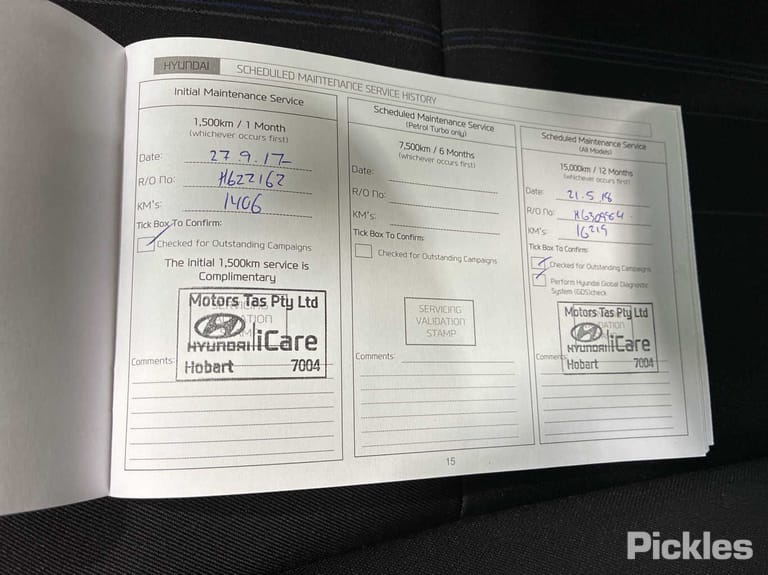 HYUNDAI SCHEDULED MAINTENANCE SERVICE HISTORY
Initial Maintenance Service
1,500km / 1 Month
(whichever occurs first)
Date: 27.9.17
R/O No: H622162
KM's: 1406
Tick Box To Confirm:
Checked for Outstanding Campaigns
The initial 1,500km service is
Complimentary
Motors Tas Pty Ltd
HYUNDAI iCare
Hobart 7004
Comments:
Scheduled Maintenance Service
(Petrol Turbo only)
7,500km / 6 Months
(whichever occurs first)
Date:
R/O No:
KM's:
Tick Box To Confirm:
Checked for Outstanding Campaigns
SERVICING
VALIDATION
STAMP
Comments:
Scheduled Maintenance Service
(All Models)
15,000km / 12 Months
(whichever occurs first)
Date: 21.5.18
R/O No:
KM's: 16219
Tick Box To Confirm:
Checked for Outstanding Campaigns
Perform Hyundai Global Diagnostic
System (GDS) check
Motors Tas Pty Ltd
HYUNDAI iCare
Hobart 7004
Comments:
15
Pickles